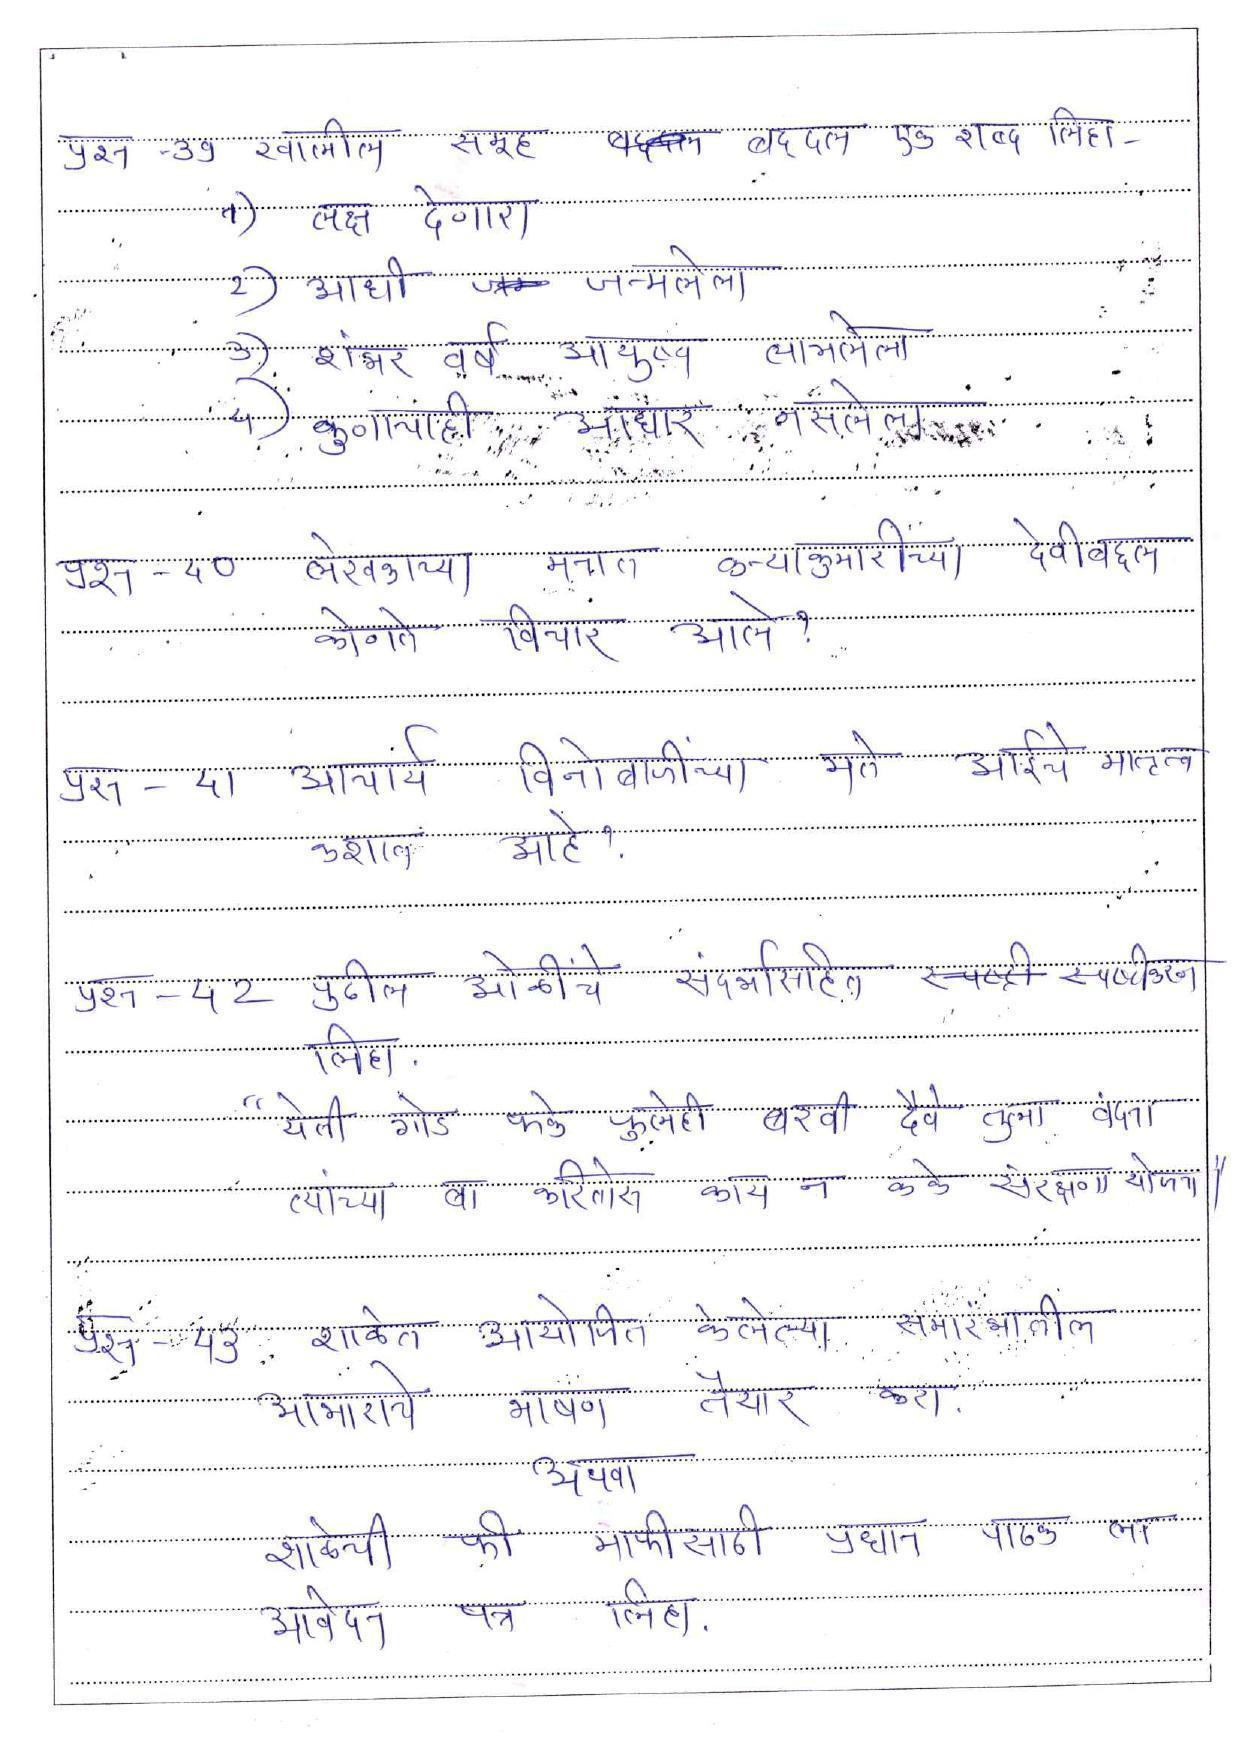 प्रश्न -39 खालील समूह बद्दल एक शब्द लिहा-
१) लक्ष देणारा
2) आधी जन्मलेला
3) शंभर वर्षे आयुष्य लाभलेला
४) कुणाचाही आधार नसलेला
प्रश्न - ४० लेखकाच्या मनात कन्याकुमारींच्या देवीबद्दल
कोणते विचार आले?
प्रश्न - ४१ आचार्य विनोबाजींच्या मते आईचे मातृत्व
कशात आहे?
प्रश्न - ४2 पुढील ओळींचे संदर्भासहित स्पष्टीकरण
लिहा.
"येती गोड फळे फुलेही बरवी दैवे तुला वंदना
त्यांच्या बा करितोस काय न कळे संरक्षणा योजना"
प्रश्न - ४3 शाळेत आयोजित केलेल्या समारंभातील
आभाराचे भाषण तैयार करा.
अथवा
शाळेची फी माफीसाठी प्रधान पाठक ला
आवेदन पत्र लिहा.